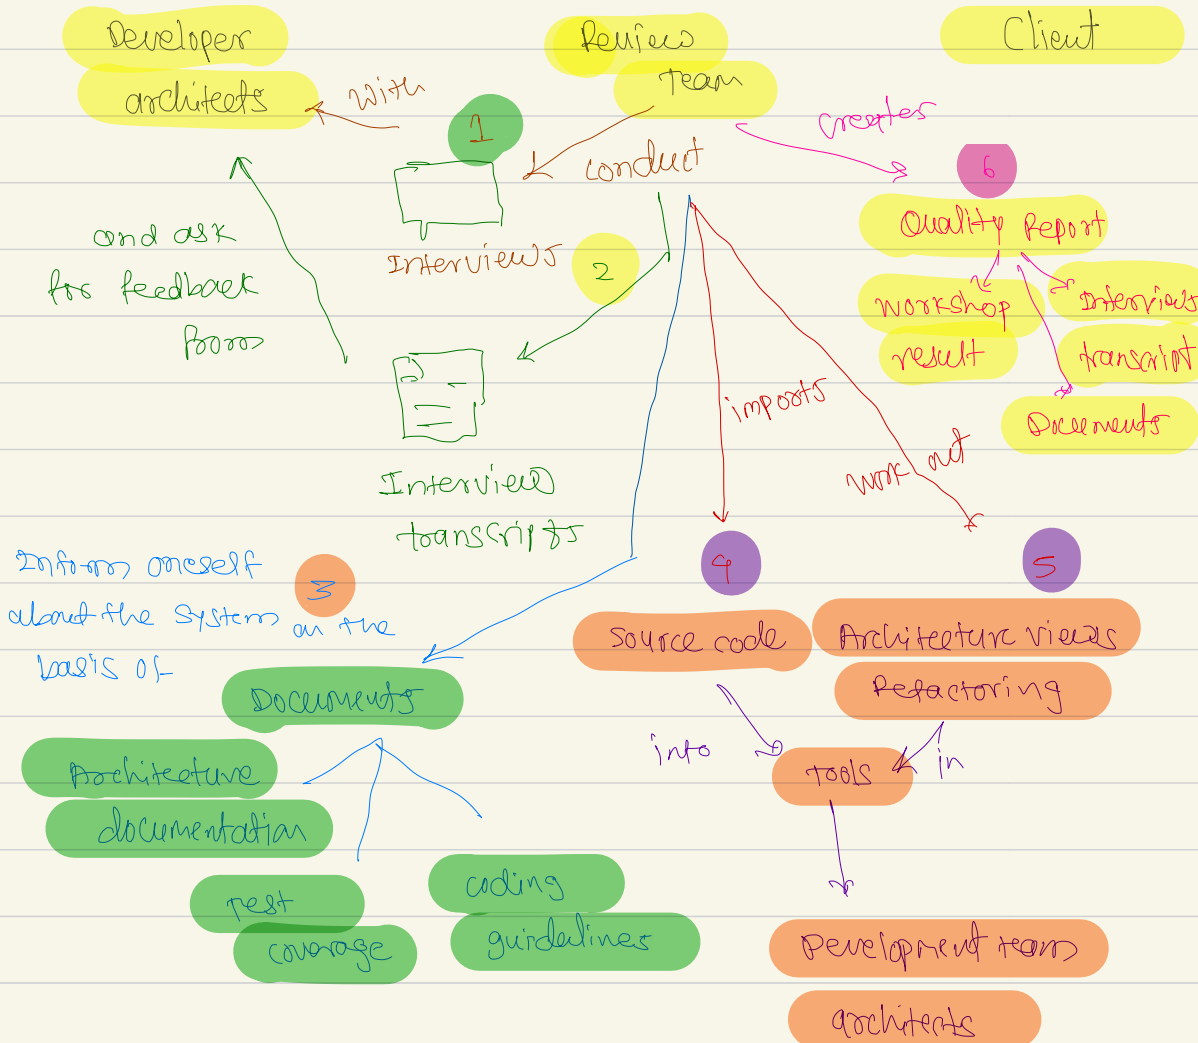 Developer
architects
Review
Team
Client
With
1
conduct
creates
6
Interviews
2
and ask
for feedback
from
Quality Report
workshop
result
Interviews
transcript
Documents
Interview
transcripts
imports
work out
Inform oneself
about the system
on the
basis of
3
4
5
Documents
Source code
Architecture views
Refactoring
into
in
TOOLS
Architecture
documentation
Test
coverage
coding
guidelines
Development team
architects